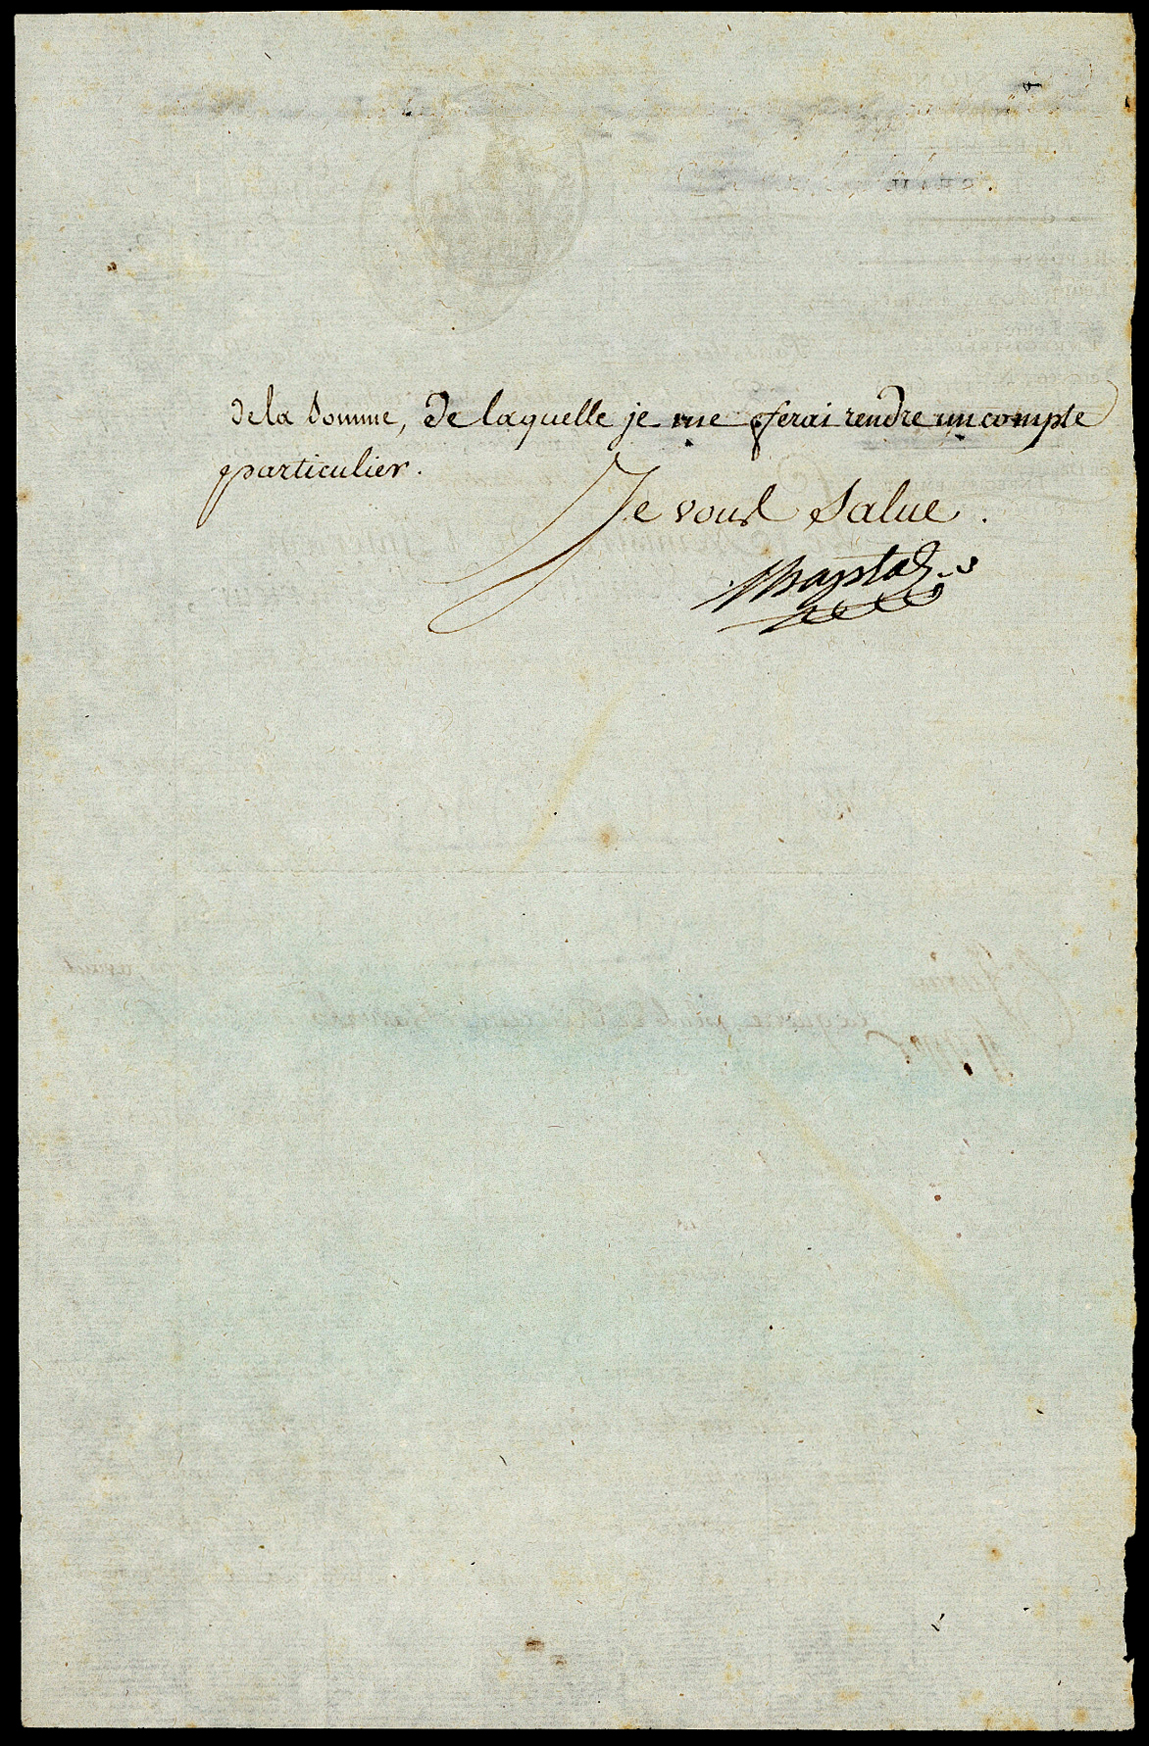 de la Somme, de laquelle je me ferai rendre un compte
particulier.
Je vous Salue.
Chaptal